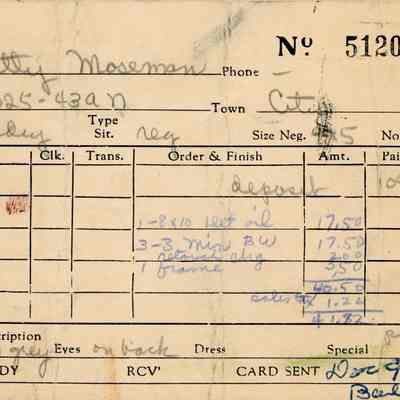 Nº 5120
tty Moseman Phone -
025-43a N Town City
Type
Sit. reg Size Neg. 5 No.
Clk. Trans. Order & Finish Amt. Pai
deposit 10
1-8x10 oil 17.50
3-3 Min BW 17.50
retouch chg 2.00
1 frame 3.50
40.50
sales tx 1.22
41.82
cription
grey Eyes on back Dress Special
DY RCV' CARD SENT Dec 9